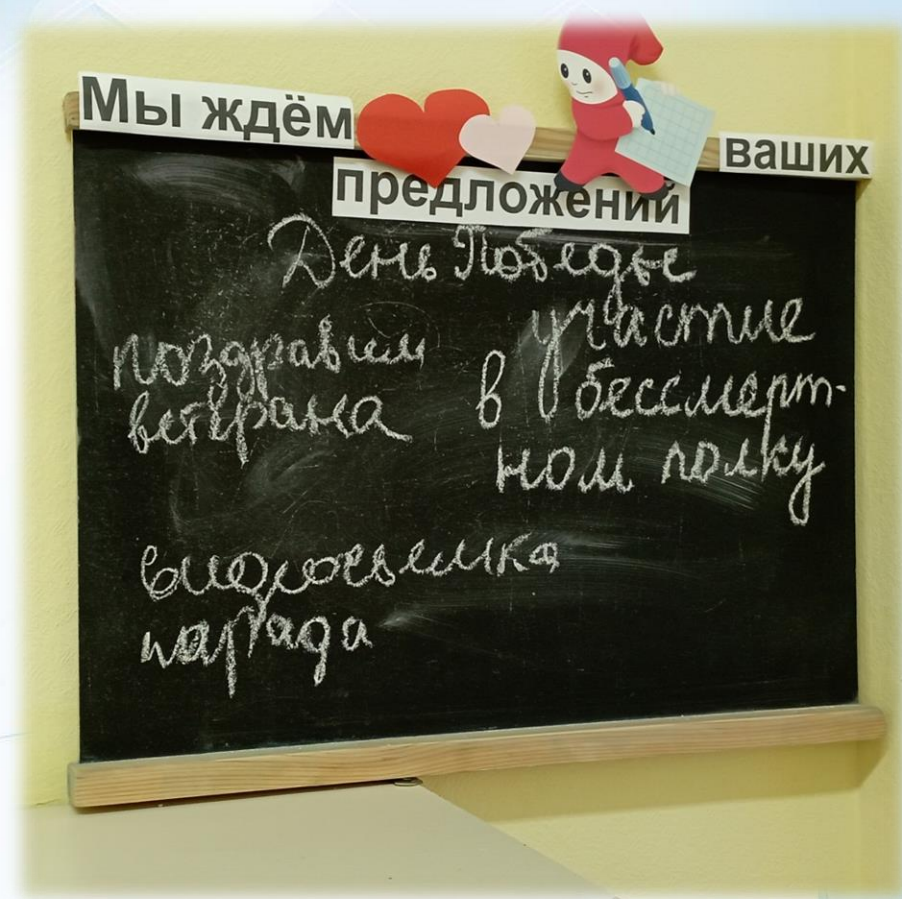 Мы ждём ваших
предложений
День Победы
поздравим
ветерана
участие
в бессмерт-
ном полку
видеосъемка
парада